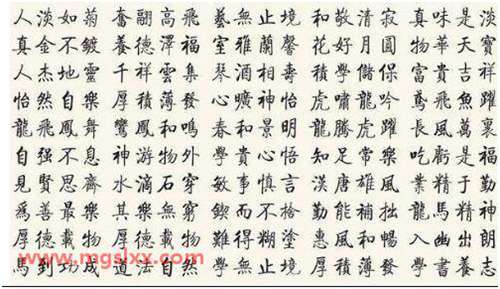 人淡如菊 奮翮高飛 藝無止境 和敬清寂 真味是淡
真金不鍍 養德澤福 室雅蘭馨 花好月圓 物華天寶
人杰地靈 千祥雲集 琴酒 壽 學儲 富貴吉祥
怡然自樂 厚積薄發 曠神怡 虎嘯龍吟 鳶飛魚躍
龍飛鳳舞 鸞鳳和鳴 春和景明 龍騰虎躍 長風萬裏
自强不息 神游物外 學貴心悟 知足常樂 吃虧是福
見賢思齊 水滴石穿 敏事慎言 漢唐雄風 業精于勤
爲善最樂 其樂無窮 鍥而不捨 勤能補拙 龍馬精神
厚德載物 厚德載物 難得糊塗 惠風和暢 入幽出朗
馬到功成 道法自然 學無止境 厚積薄發 學書養志
www.mgslxx.com